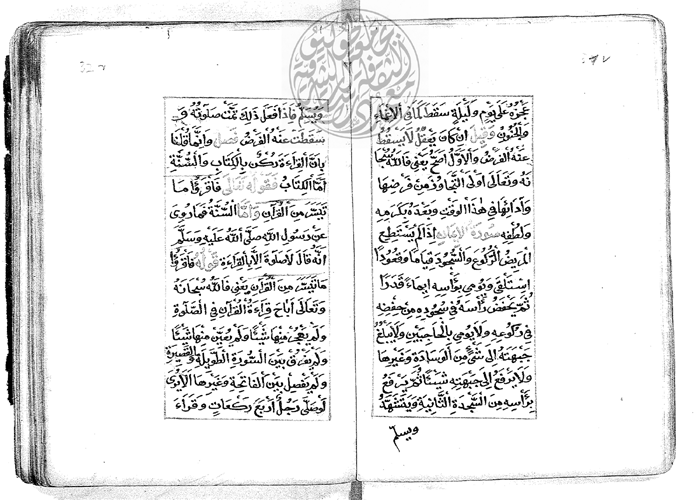 عجزه على يوم وليلة سقط كما في الإغماء
والجنون وقيل ان كان يعقل لا يسقط
عنه الفرض والاول اصح يعني فالله سبحا
نه وتعالى اولى التجاوز من فرضها
وادائها في هذا الوقت وبعده بكرمه
ولطفه صورة الايماء اذا لم يستطع
المريض الركوع والسجود قياما وقعودا
استلقى ويومي برأسه ايماء قدرا
ثم يخفض رأسه في سجوده من خفضه
في ركوعه ولا يومي بالحاجبين ولا يبلغ
جبهته الى شئ من الوسادة وغيرها
ولا يرفع الى جبهته شيئا ثم يرفع
برأسه من السجدة الثانية ويتشهد
ويسلم
ويسلم فاذا فعل ذلك تمت صلوته و
سقطت عنه الفرض فصل وانما قلنا
بان القراءة ركن بالكتاب والسنة
اما الكتاب فقوله تعالى فاقرؤا ما
تيسر من القرآن واما السنة فما روى
عن رسول الله صلى الله عليه وسلم
انه قال لا صلوة الا بالقراءة قوله فاقرؤا
ما تيسر من القرآن يعني فالله سبحانه
وتعالى اباح قراءة القرآن في الصلوة
ولم يعين منها شيئا ولم يعين منها شيئا
ولم يفرق بين السورة الطويلة والقصيرة
ولم يفصل بين الفاتحة وغيرها الا يرى
لو صلى رجل اربع ركعات وقراء